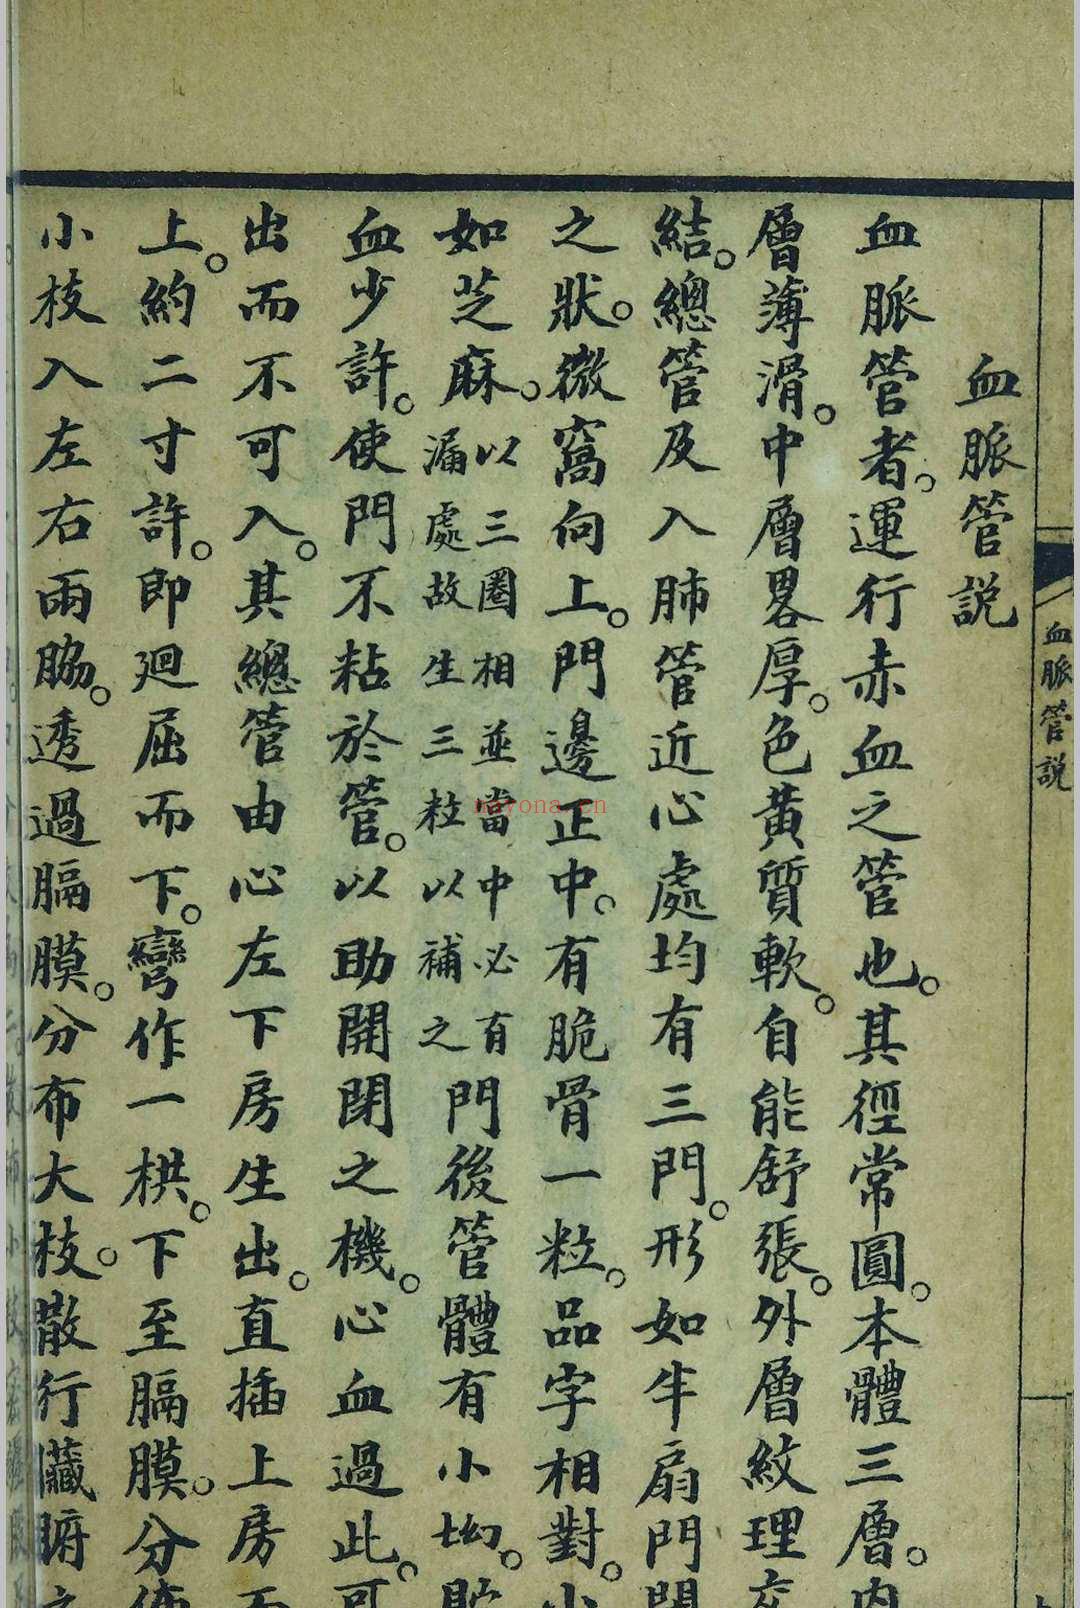 血脈管説
血脈管者。運行赤血之管也。其徑常圓。本體三層。内
層薄滑。中層畧厚。色黃質軟。自能舒張。外層紋理交
結。總管及入肺管近心處均有三門。形如半扇門閉
之狀。微窩向上。門邊正中。有脆骨一粒。品字相對。小
如芝麻。以三圈相並當中必有漏處故生三粒以補之門後管體有小坳。貯
血少許。使門不粘於管。以助開閉之機。心血過此。可
出而不可入。其總管由心左下房生出。直插上房而
上。約二寸許。即廻屈而下。彎作一栱。下至膈膜。分
小枝入左右兩脇。透過膈膜。分布大枝。散行臟腑之
血脈管説
nayona.cn